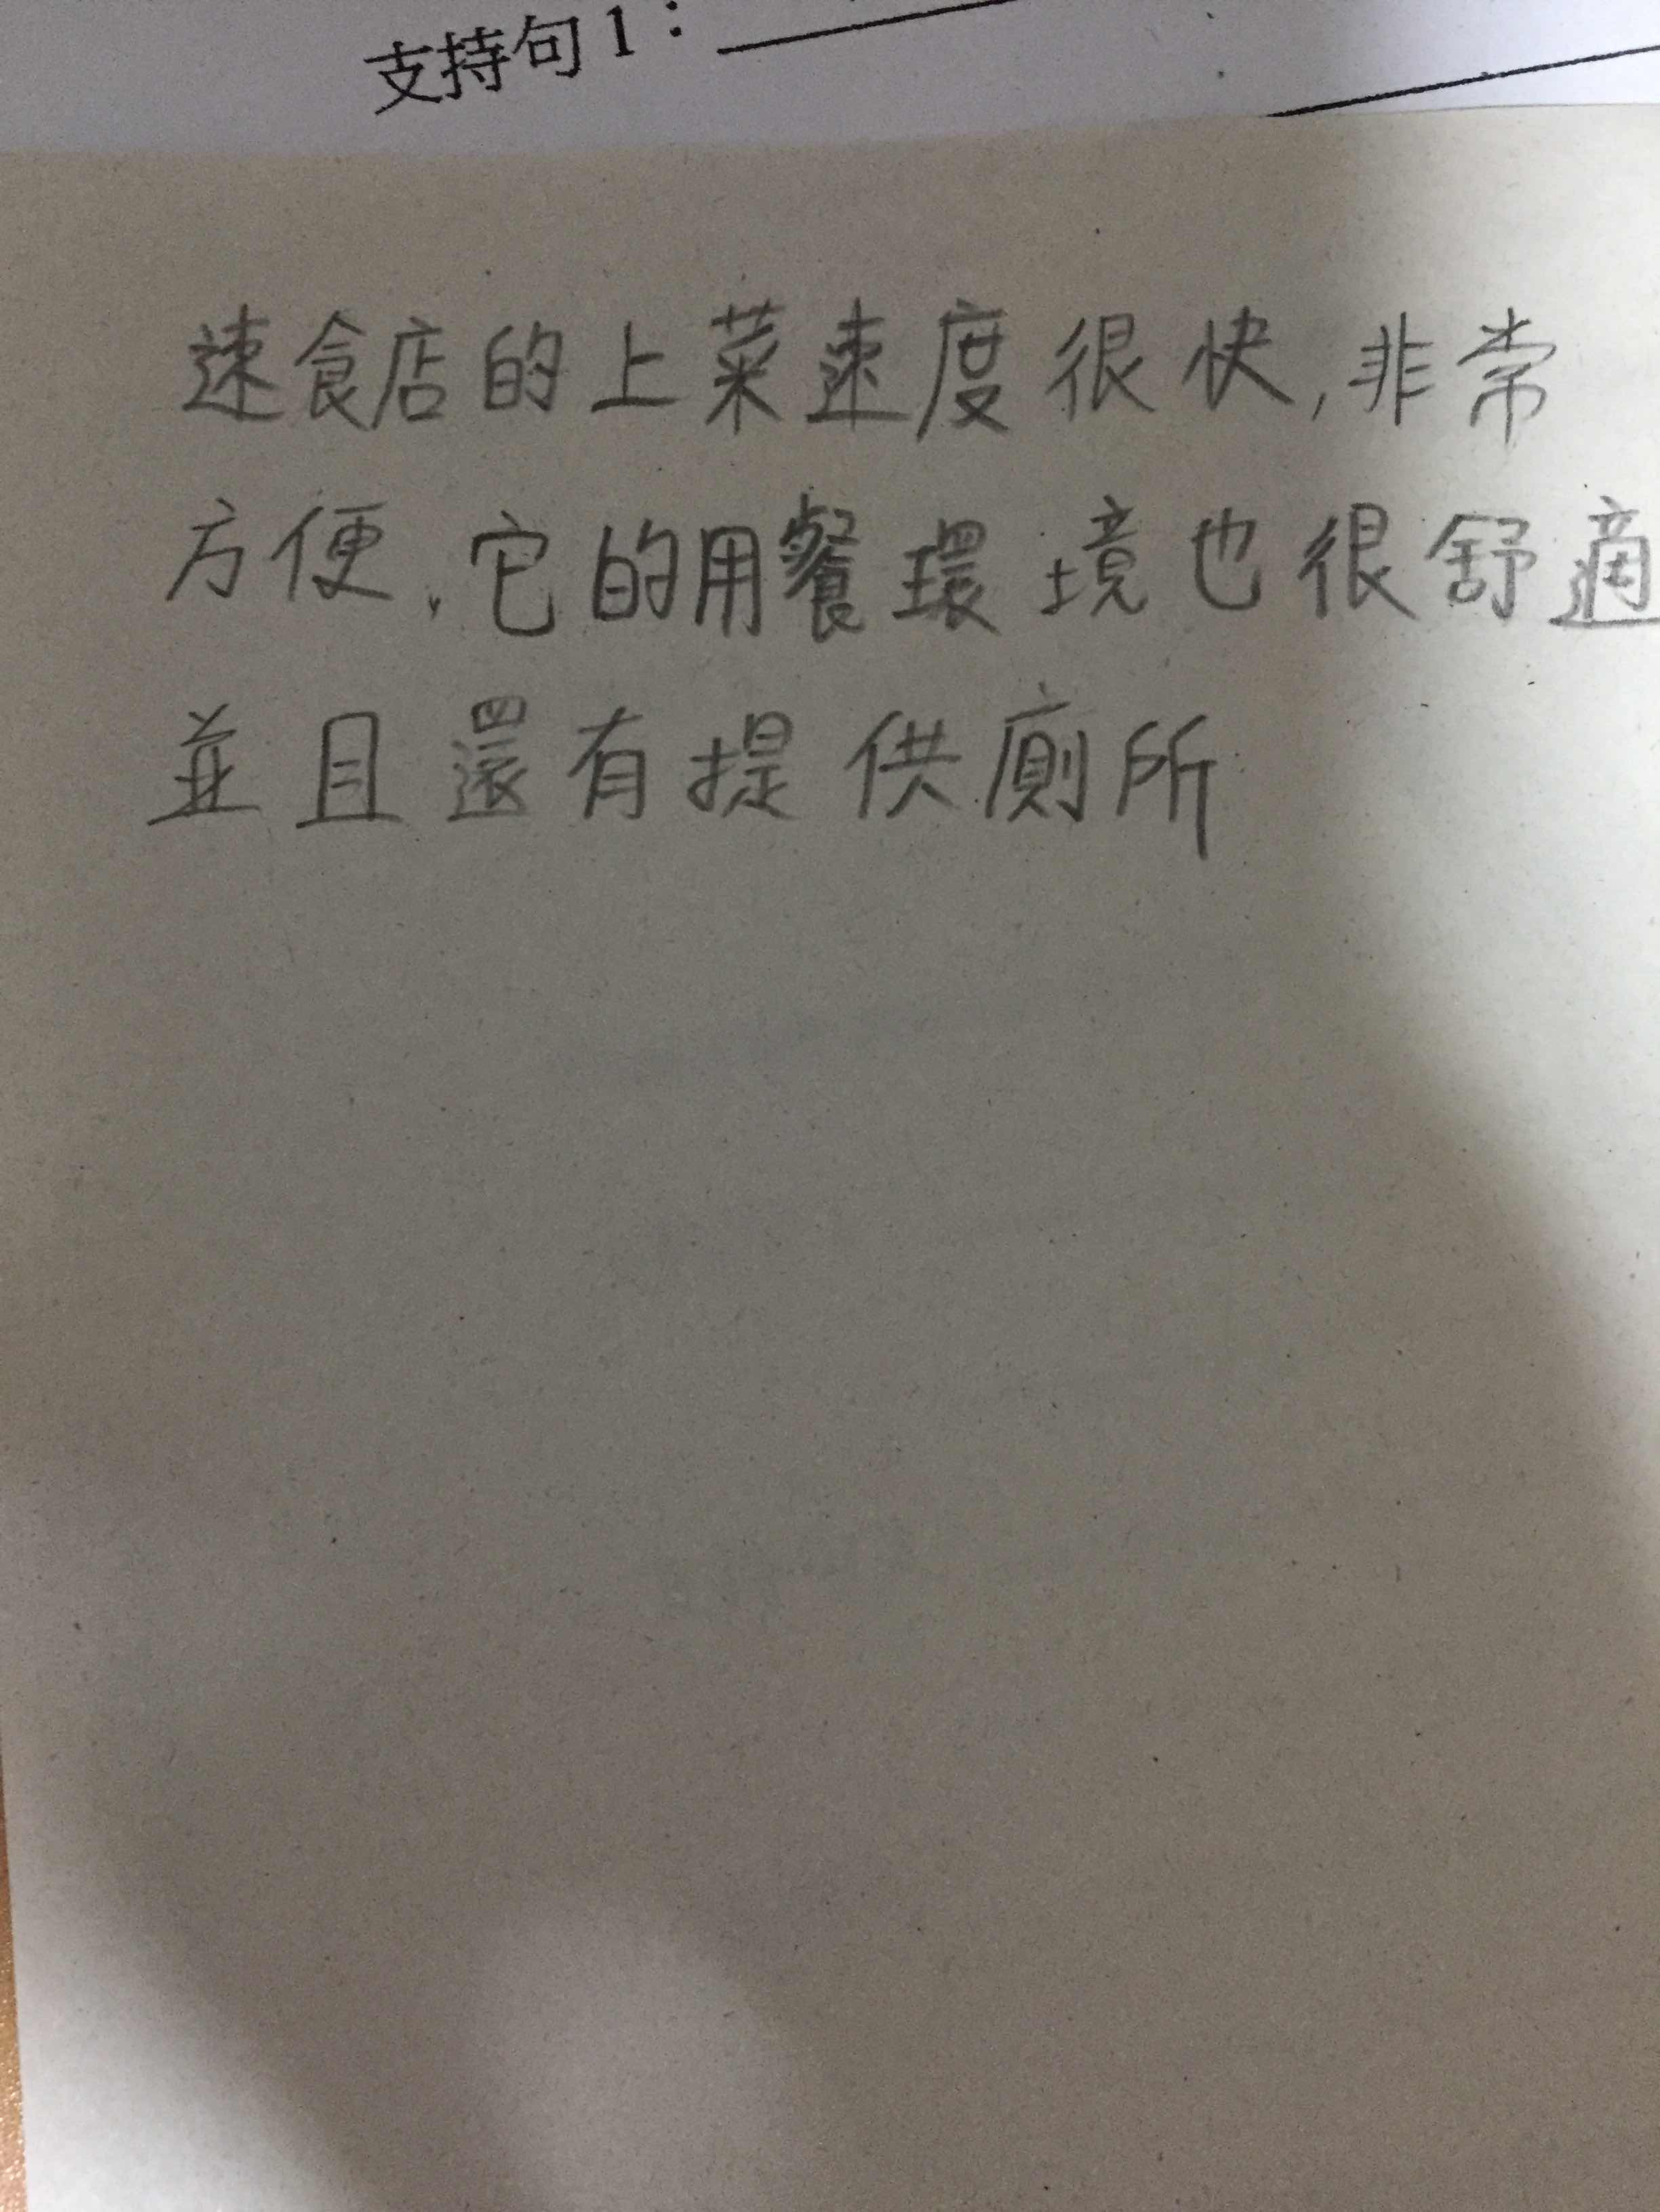 支持句1：
速食店的上菜速度很快,非常
方便,它的用餐環境也很舒適
並且還有提供廁所